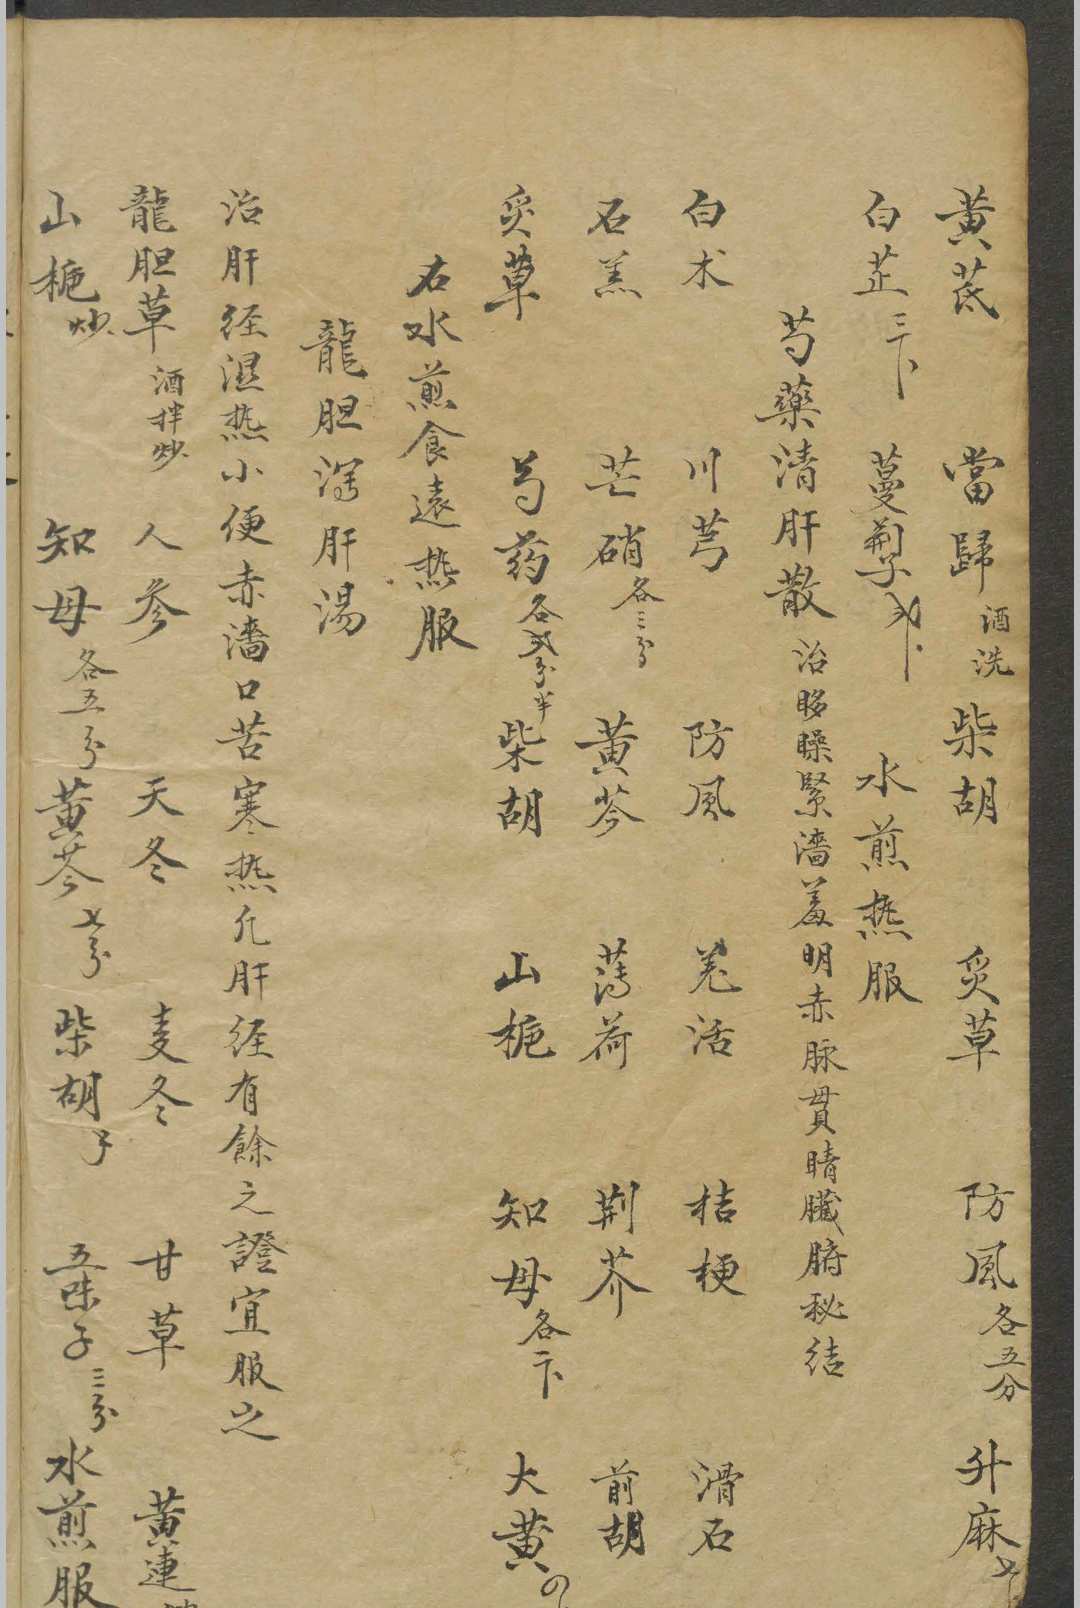 黄茋 當歸酒洗 柴胡 炙草 防風各五分 升麻
白芷 蔓荆子 水煎热服
芍藥清肝散 治眵矂緊濇羞明赤脉貫睛臟腑秘结
白术 川芎 防風 羌活 桔梗 滑石
石羔 芒硝各三分 黄芩 薄荷 荆芥 前胡
炙草 芍药各弍分半 柴胡 山栀 知母各 大黄
右水煎食遠热服
龍胆瀉肝湯
治肝经湿热小便赤濇口苦寒热凢肝经有餘之證宜服之
龍胆草酒拌炒 人参 天冬 麦冬 甘草 黄連
山栀炒 知母各五分 黄芩七分 柴胡 五味子三分 水煎服